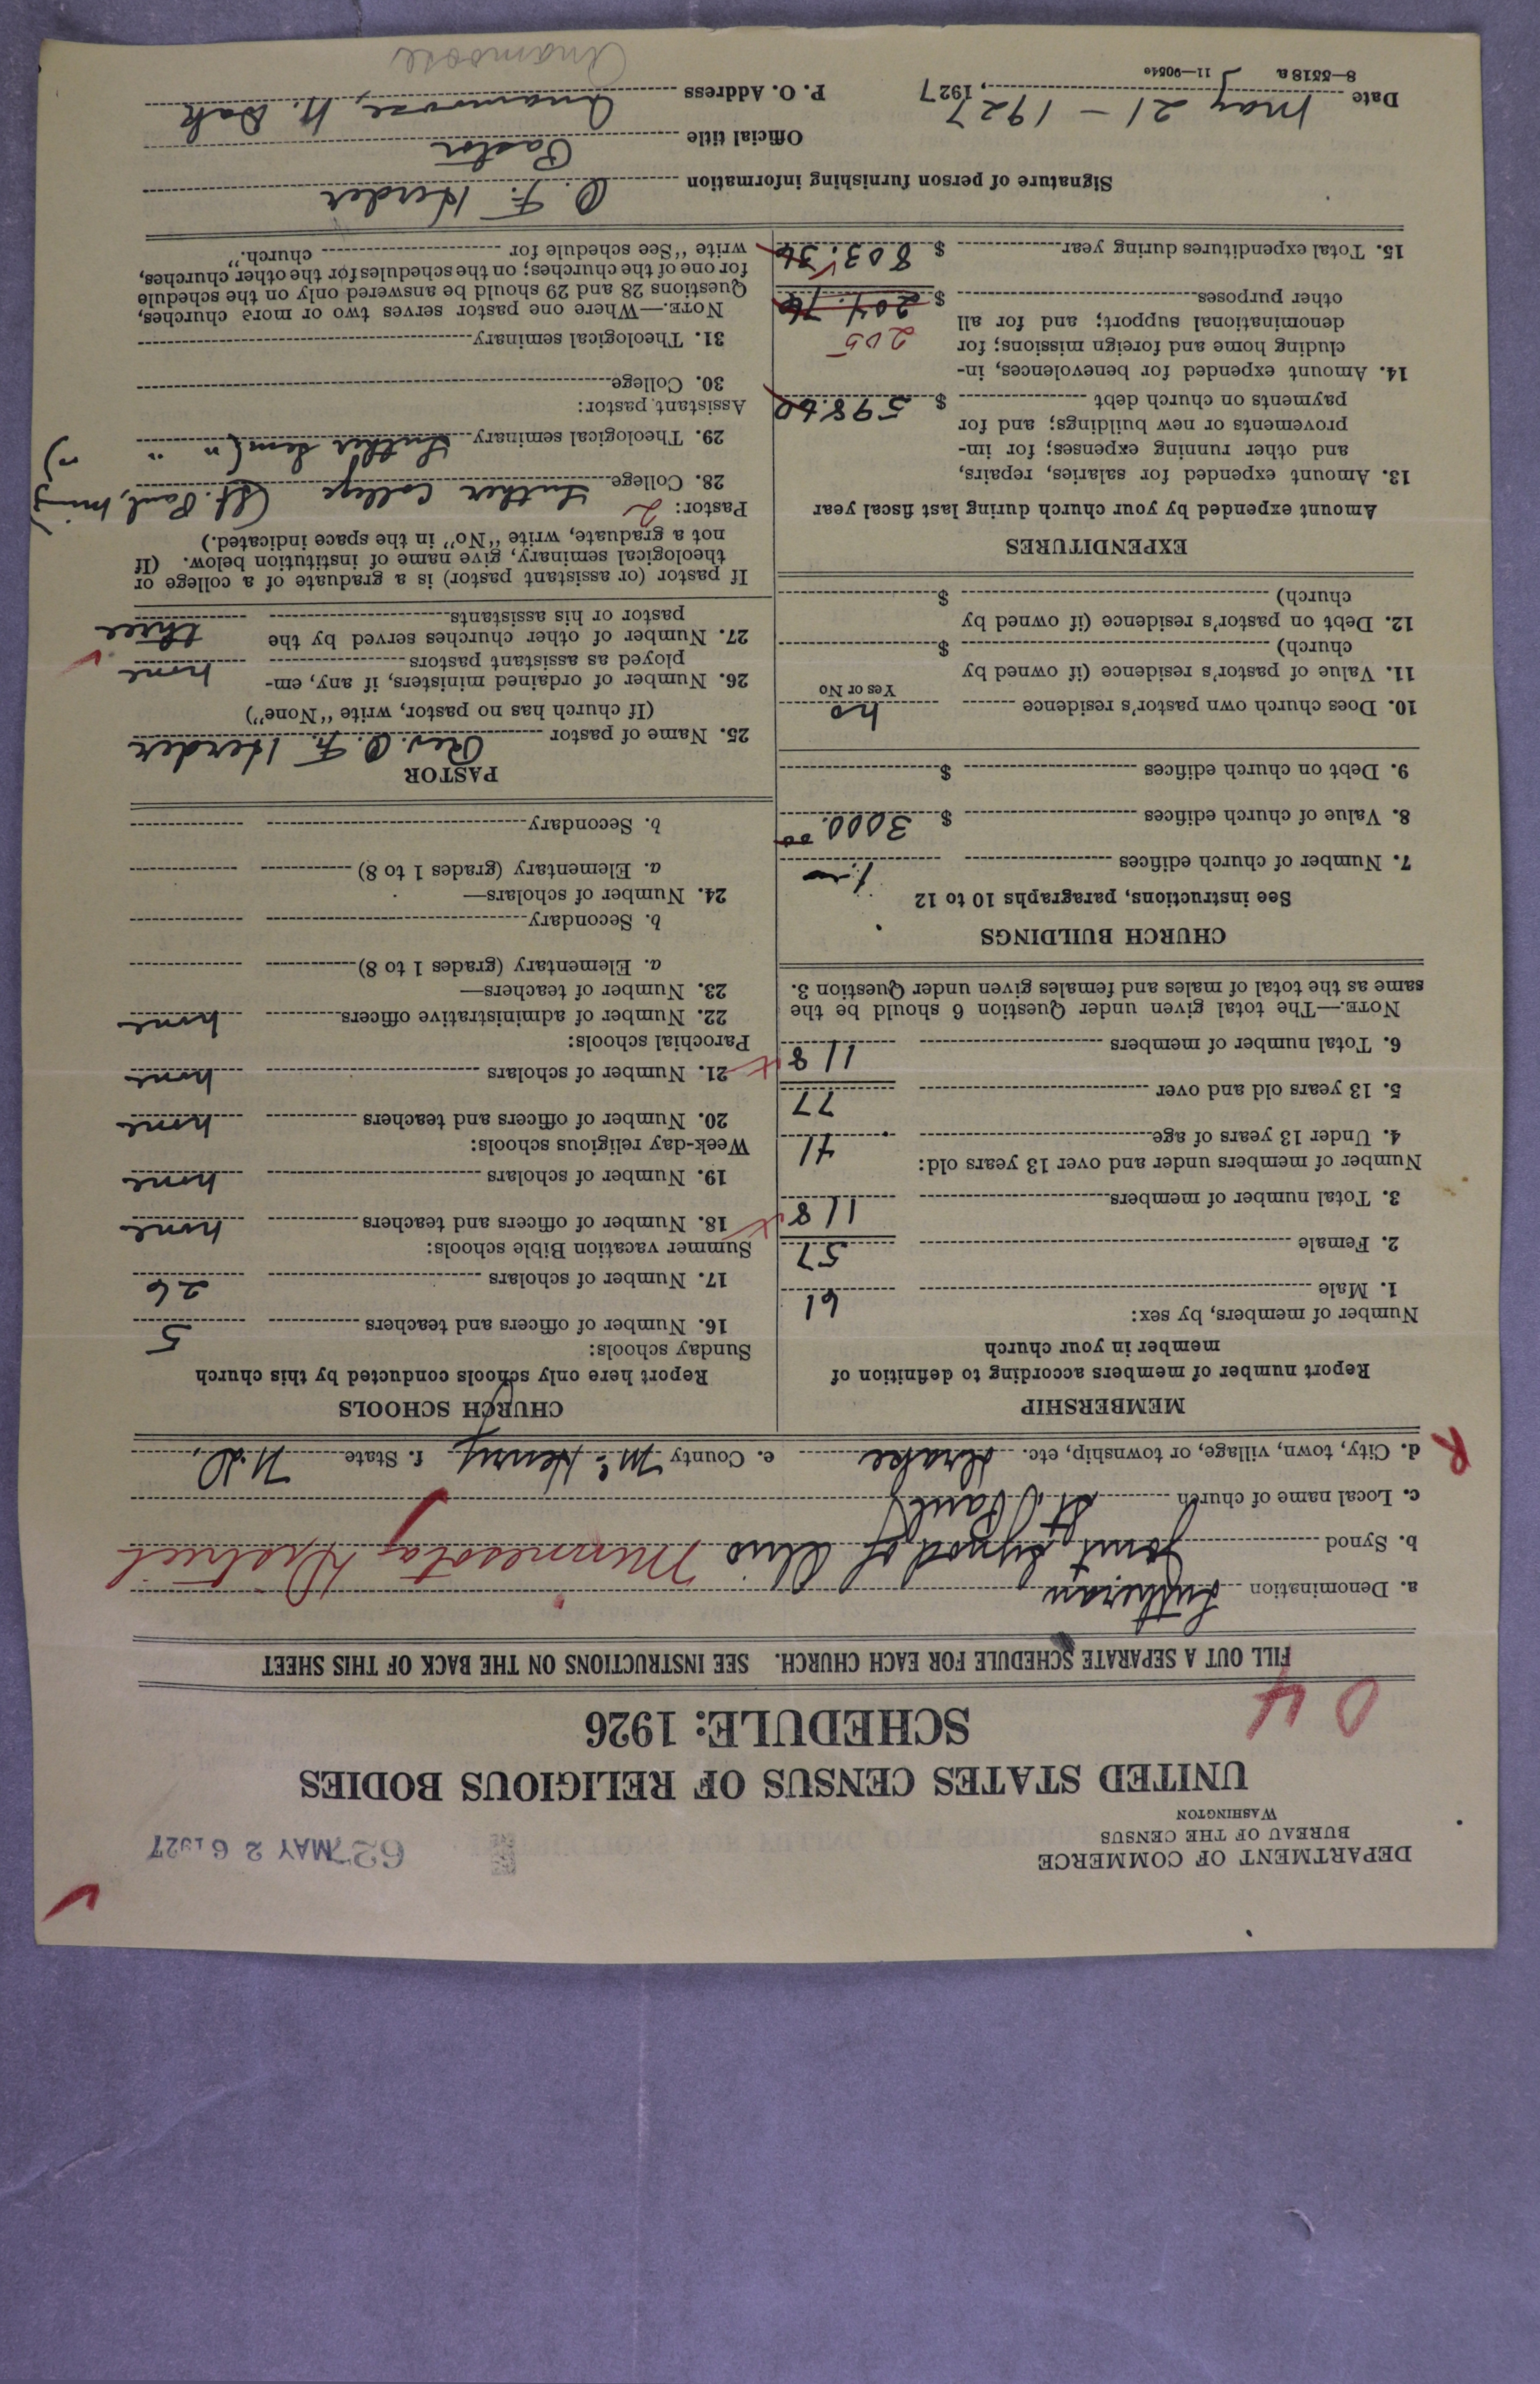 DEPARTMENT OF COMMERCE
BUREAU OF THE CENSUS
WASHINGTON
627 MAY 26 1927
UNITED STATES CENSUS OF RELIGIOUS BODIES
SCHEDULE: 1926
04
FILL OUT A SEPARATE SCHEDULE FOR EACH CHURCH. SEE INSTRUCTIONS ON THE BACK OF THIS SHEET
a. Denomination Lutheran
b. Synod Joint Synod of Ohio Minnesota District
c. Local name of church St. Paul
R
d. City, town, village, or township, etc. Drake e. County McHenry f. State N.D.
MEMBERSHIP
Report number of members according to definition of
member in your church
Number of members, by sex:
1. Male 61
2. Female 57
3. Total number of members 118
Number of members under and over 13 years old:
4. Under 13 years of age 41
5. 13 years old and over 77
6. Total number of members 118
NOTE.—The total given under Question 6 should be the
same as the total of males and females given under Question 3.
CHURCH BUILDINGS
See instructions, paragraphs 10 to 12
7. Number of church edifices 1
8. Value of church edifices $ 3000.00
9. Debt on church edifices $
10. Does church own pastor's residence no
Yes or No
11. Value of pastor's residence (if owned by
church) $
12. Debt on pastor's residence (if owned by
church) $
EXPENDITURES
Amount expended by your church during last fiscal year
13. Amount expended for salaries, repairs,
and other running expenses; for im-
provements or new buildings; and for
payments on church debt $ 598.60
14. Amount expended for benevolences, in-
cluding home and foreign missions; for
denominational support; and for all
205
other purposes $ 204.76
15. Total expenditures during year $ 803.36
CHURCH SCHOOLS
Report here only schools conducted by this church
Sunday schools:
16. Number of officers and teachers 5
17. Number of scholars 26
Summer vacation Bible schools:
18. Number of officers and teachers none
19. Number of scholars none
Week-day religious schools:
20. Number of officers and teachers none
21. Number of scholars none
Parochial schools:
22. Number of administrative officers none
23. Number of teachers—
a. Elementary (grades 1 to 8)
b. Secondary
24. Number of scholars—
a. Elementary (grades 1 to 8)
b. Secondary
PASTOR
25. Name of pastor Rev. O. F. Herder
(If church has no pastor, write "None")
26. Number of ordained ministers, if any, em-
ployed as assistant pastors none
27. Number of other churches served by the
pastor or his assistants three
If pastor (or assistant pastor) is a graduate of a college or
theological seminary, give name of institution below. (If
not a graduate, write "No" in the space indicated.)
Pastor: 2
28. College Luther College (St. Paul, Minn)
29. Theological seminary Luther Sem (" " ")
Assistant pastor:
30. College
31. Theological seminary
NOTE.—Where one pastor serves two or more churches,
Questions 28 and 29 should be answered only on the schedule
for one of the churches; on the schedules for the other churches,
write "See schedule for church."
Signature of person furnishing information O. F. Herder
Official title Pastor
Date May 21 - 1927, 1927 P. O. Address Anamoose, N. Dak
8—5518 a 11—9054e
Anamoose